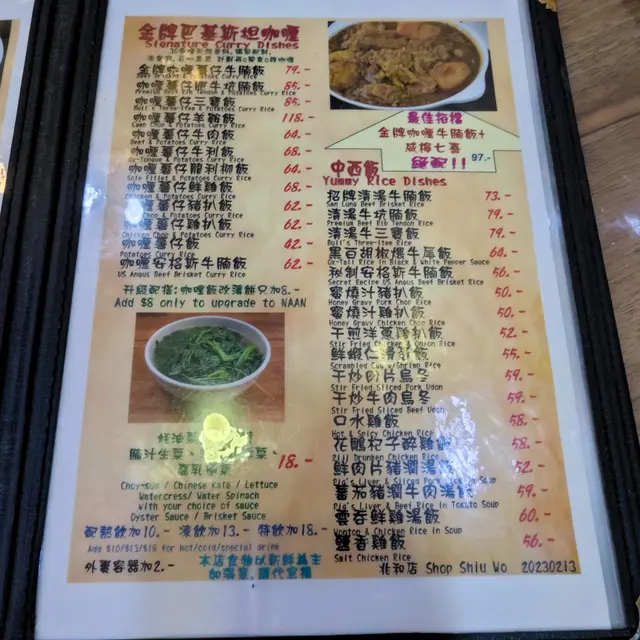 金牌巴基斯坦咖喱
Signature Curry Dishes
金牌咖喱薯仔牛腩飯 79.-
Beef Brisket & Potatoes Curry Rice
咖喱薯仔肥牛坑腩飯 85.-
Premium Beef Rib Tendon & Potatoes Curry Rice
咖喱薯仔三寶飯 85.-
Bull's Three-Item & Potatoes Curry Rice
咖喱薯仔羊鞍飯 118.-
Lamb Chop & Potatoes Curry Rice
咖喱薯仔牛肉飯 64.-
Beef & Potatoes Curry Rice
咖喱薯仔牛脷飯 68.-
Ox-Tongue & Potatoes Curry Rice
咖喱薯仔龍脷柳飯 64.-
Sole Fillet & Potatoes Curry Rice
咖喱薯仔鮮雞飯 68.-
Chicken & Potatoes Curry Rice
薯仔豬扒飯 62.-
Chop & Potatoes Curry Rice
薯仔雞扒飯 62.-
Chicken Chop & Potatoes Curry Rice
薯仔飯 42.-
Potatoes Curry Rice
咖喱安格斯牛腩飯 62.-
US Angus Beef Brisket Curry Rice
升級配搭:咖喱飯改薄餅只加8.-
Add $8 only to upgrade to NAAN
18.-
Choy-sum / Chinese Kale / Lettuce
Watercress/ Water Spinach
With your choice of sauce
Oyster Sauce / Brisket Sauce
配熱飲加10.- 凍飲加13.- 特飲加18.-
Add $10/$13/$18 for hot/cold/special drink
外賣容器加2.-
最佳拍檔
金牌咖喱牛腩飯+
咸檸七喜
絕配!! 97.-
中西飯
Yummy Rice Dishes
招牌清湯牛腩飯 73.-
San Lung Beef Brisket Rice
清湯牛坑腩飯 79.-
Premium Beef Rib Tendon Rice
清湯牛三寶飯 79.-
Bull's Three-Item Rice
黑白胡椒煨牛尾飯 64.-
Ox-Tail Rice in Black & White Pepper Sauce
秘制安格斯牛腩飯 56.-
Secret Recipe US Angus Beef Brisket Rice
蜜燒汁豬扒飯 50.-
Honey Gravy Pork Chop Rice
蜜燒汁雞扒飯 50.-
Honey Gravy Chicken Chop Rice
干煎洋蔥雞扒飯 52.-
Stir Fried Chicken & Onion Rice
鮮蝦仁滑蛋飯 55.-
Scrambled Shrimp Rice
干炒肉片烏冬 59.-
Stir Fried Sliced Pork Udon
干炒牛肉烏冬 59.-
Stir Fried Sliced Beef Udon
口水雞飯 58.-
Hot & Spicy Chicken Rice
花雕杞子醉雞飯 58.-
Drunken Chicken Rice
鮮肉片豬潤湯飯 52.-
Pig's Liver & Sliced Pork Rice in Soup
蕃茄豬潤牛肉湯飯 59.-
Pig's Liver & Beef Rice in Tomato Soup
雲吞鮮雞湯飯 60.-
Wonton & Chicken Rice in Soup
鹽香雞飯 56.-
Salt Chicken Rice
兆和店 Shop Shiu Wo 20230213